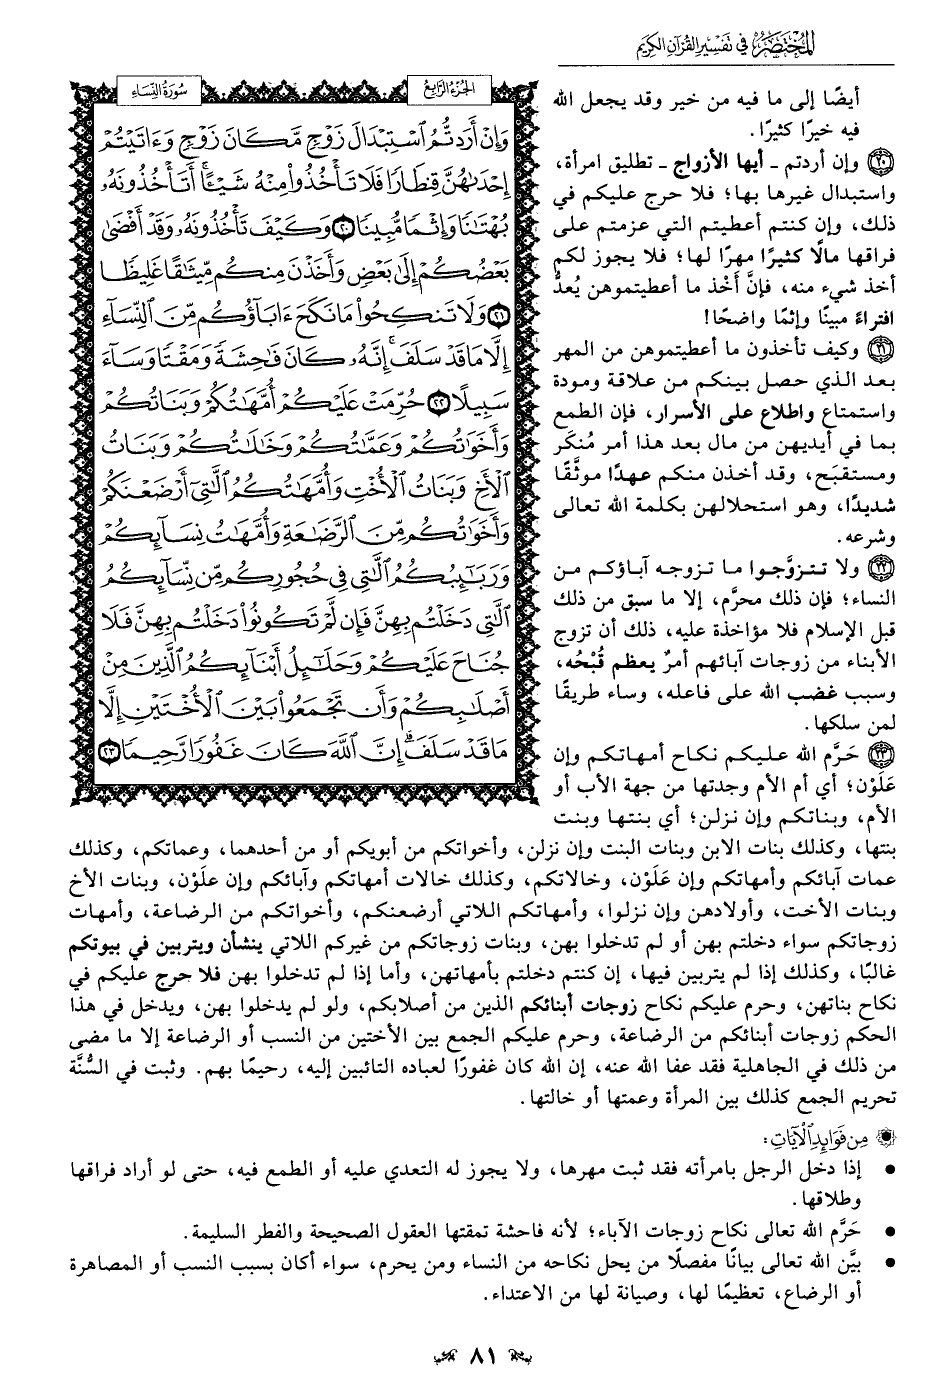 المختصر في تفسير القرآن الكريم
سورة النساء
الجزء الرابع
وَإِنْ أَرَدتُّمُ ٱسْتِبْدَالَ زَوْجٍ مَّكَانَ زَوْجٍ وَءَاتَيْتُمْ
إِحْدَىٰهُنَّ قِنطَارًا فَلَا تَأْخُذُوا۟ مِنْهُ شَيْـًٔا ۚ أَتَأْخُذُونَهُۥ
بُهْتَٰنًا وَإِثْمًا مُّبِينًا ٢٠ وَكَيْفَ تَأْخُذُونَهُۥ وَقَدْ أَفْضَىٰ
بَعْضُكُمْ إِلَىٰ بَعْضٍ وَأَخَذْنَ مِنكُم مِّيثَٰقًا غَلِيظًا
٢١ وَلَا تَنكِحُوا۟ مَا نَكَحَ ءَابَآؤُكُم مِّنَ ٱلنِّسَآءِ
إِلَّا مَا قَدْ سَلَفَ ۚ إِنَّهُۥ كَانَ فَٰحِشَةً وَمَقْتًا وَسَآءَ
سَبِيلًا ٢٢ حُرِّمَتْ عَلَيْكُمْ أُمَّهَٰتُكُمْ وَبَنَاتُكُمْ
وَأَخَوَٰتُكُمْ وَعَمَّٰتُكُمْ وَخَٰلَٰتُكُمْ وَبَنَاتُ
ٱلْأَخِ وَبَنَاتُ ٱلْأُخْتِ وَأُمَّهَٰتُكُمُ ٱلَّٰتِىٓ أَرْضَعْنَكُمْ
وَأَخَوَٰتُكُم مِّنَ ٱلرَّضَٰعَةِ وَأُمَّهَٰتُ نِسَآئِكُمْ
وَرَبَٰٓئِبُكُمُ ٱلَّٰتِى فِى حُجُورِكُم مِّن نِّسَآئِكُمُ
ٱلَّٰتِى دَخَلْتُم بِهِنَّ فَإِن لَّمْ تَكُونُوا۟ دَخَلْتُم بِهِنَّ فَلَا
جُنَاحَ عَلَيْكُمْ وَحَلَٰٓئِلُ أَبْنَآئِكُمُ ٱلَّذِينَ مِنْ
أَصْلَٰبِكُمْ وَأَن تَجْمَعُوا۟ بَيْنَ ٱلْأُخْتَيْنِ إِلَّا
مَا قَدْ سَلَفَ ۗ إِنَّ ٱللَّهَ كَانَ غَفُورًا رَّحِيمًا ٢٣
أيضًا إلى ما فيه من خير وقد يجعل الله
فيه خيرًا كثيرًا.
٢٠ وإن أردتم ـ أيها الأزواج ـ تطليق امرأة،
واستبدال غيرها بها؛ فلا حرج عليكم في
ذلك، وإن كنتم أعطيتم التي عزمتم على
فراقها مالًا كثيرًا مهرًا لها؛ فلا يجوز لكم
أخذ شيء منه، فإنَّ أَخْذ ما أعطيتموهن يُعدُّ
افتراءً مبينًا وإثمًا واضحًا!
٢١ وكيف تأخذون ما أعطيتموهن من المهر
بعد الذي حصل بينكم من علاقة ومودة
واستمتاع واطلاع على الأسرار، فإن الطمع
بما في أيديهن من مال بعد هذا أمر مُنكَر
ومستقبَح، وقد أخذن منكم عهدًا موثَّقًا
شديدًا، وهو استحلالهن بكلمة الله تعالى
وشرعه.
٢٢ ولا تتزوَّجوا ما تزوجه آباؤكم من
النساء؛ فإن ذلك محرَّم، إلا ما سبق من ذلك
قبل الإسلام فلا مؤاخذة عليه، ذلك أن تزوج
الأبناء من زوجات آبائهم أمرٌ يعظم قُبْحُه،
وسبب غضب الله على فاعله، وساء طريقًا
لمن سلكها.
٢٣ حَرَّم الله عليكم نكاح أمهاتكم وإن
عَلَوْن؛ أي أم الأم وجدتها من جهة الأب أو
الأم، وبناتكم وإن نزلن؛ أي بنتها وبنت
بنتها، وكذلك بنات الابن وبنات البنت وإن نزلن، وأخواتكم من أبويكم أو من أحدهما، وعماتكم، وكذلك
عمات آبائكم وأمهاتكم وإن عَلَوْن، وخالاتكم، وكذلك خالات أمهاتكم وآبائكم وإن علَوْن، وبنات الأخ
وبنات الأخت، وأولادهن وإن نزلوا، وأمهاتكم اللاتي أرضعنكم، وأخواتكم من الرضاعة، وأمهات
زوجاتكم سواء دخلتم بهن أو لم تدخلوا بهن، وبنات زوجاتكم من غيركم اللاتي ينشأن ويتربين في بيوتكم
غالبًا، وكذلك إذا لم يتربين فيها، إن كنتم دخلتم بأمهاتهن، وأما إذا لم تدخلوا بهن فلا حرج عليكم في
نكاح بناتهن، وحرم عليكم نكاح زوجات أبنائكم الذين من أصلابكم، ولو لم يدخلوا بهن، ويدخل في هذا
الحكم زوجات أبنائكم من الرضاعة، وحرم عليكم الجمع بين الأختين من النسب أو الرضاعة إلا ما مضى
من ذلك في الجاهلية فقد عفا الله عنه، إن الله كان غفورًا لعباده التائبين إليه، رحيمًا بهم. وثبت في السُّنَّة
تحريم الجمع كذلك بين المرأة وعمتها أو خالتها.
من فوائد الآيات:
• إذا دخل الرجل بامرأته فقد ثبت مهرها، ولا يجوز له التعدي عليه أو الطمع فيه، حتى لو أراد فراقها
وطلاقها.
• حَرَّم الله تعالى نكاح زوجات الآباء؛ لأنه فاحشة تمقتها العقول الصحيحة والفطر السليمة.
• بيَّن الله تعالى بيانًا مفصلًا من يحل نكاحه من النساء ومن يحرم، سواء أكان بسبب النسب أو المصاهرة
أو الرضاع، تعظيمًا لها، وصيانة لها من الاعتداء.
٨١